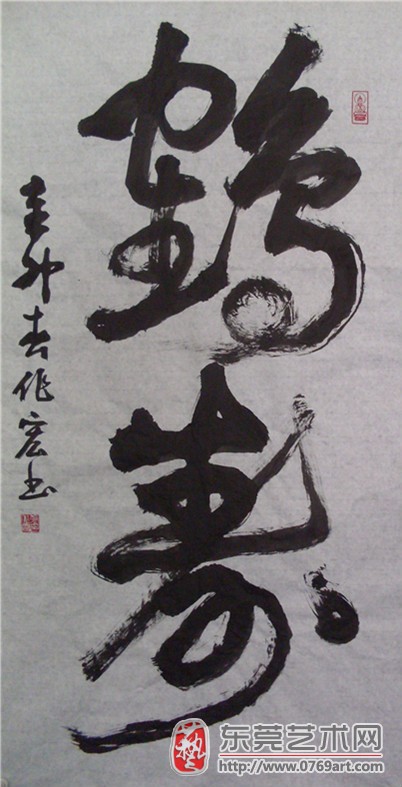 鹤寿
辛卯春作宏书
藝
东莞艺术网
http://www.0769art.com